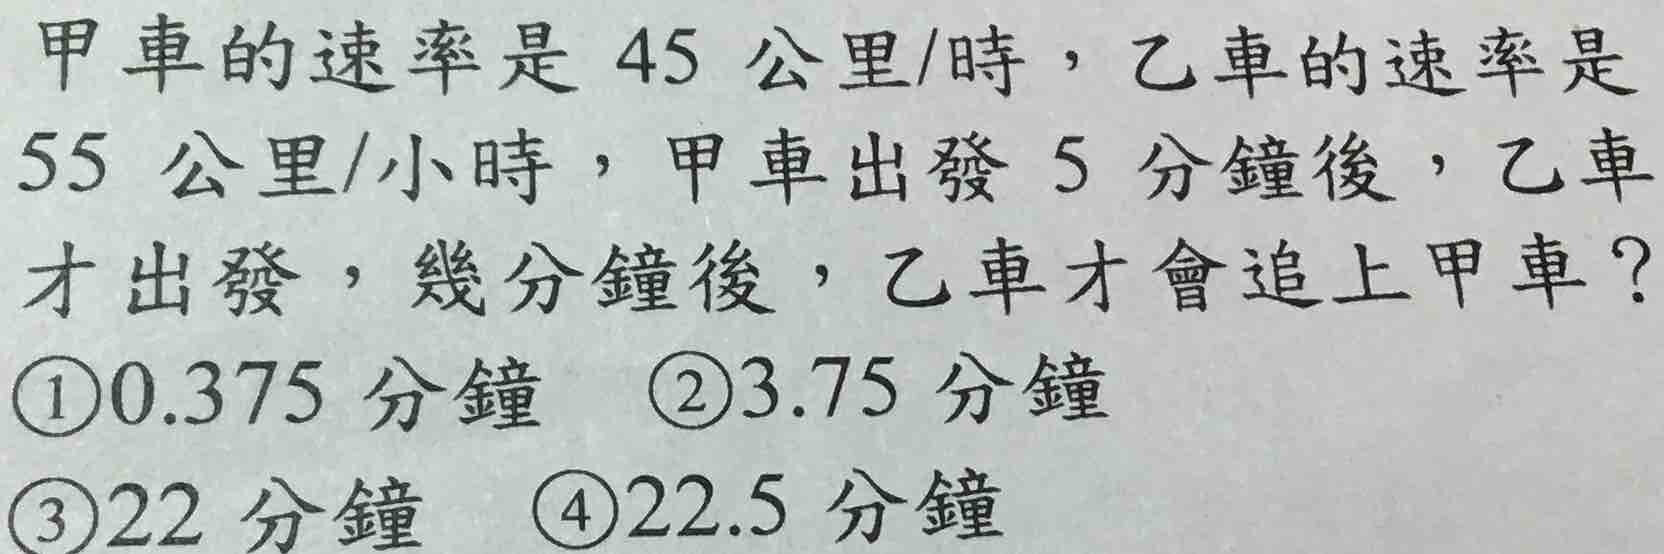 甲車的速率是 45 公里/時，乙車的速率是
55 公里/小時，甲車出發 5 分鐘後，乙車
才出發，幾分鐘後，乙車才會追上甲車？
①0.375 分鐘 ②3.75 分鐘
③22 分鐘 ④22.5 分鐘